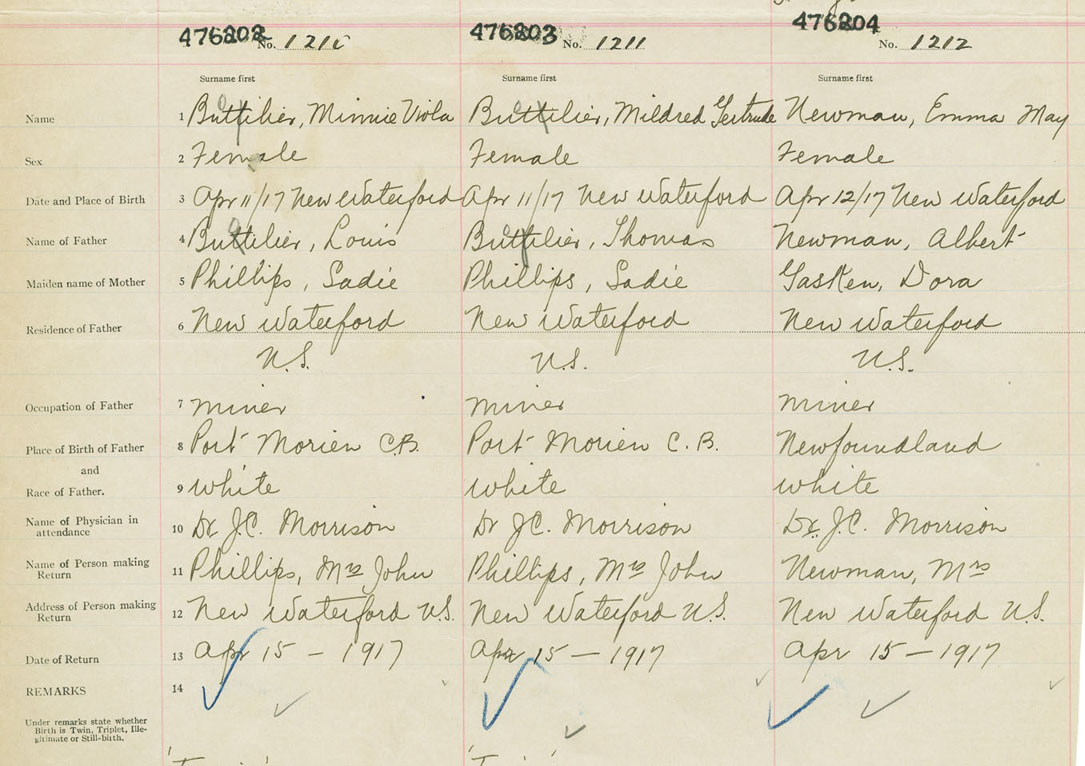 476202 No. 1210 476203 No. 1211 476204 No. 1212
Surname first Surname first Surname first
Name 1 Buttilier, Minnie Viola Buttilier, Mildred Gertrude Newman, Emma May
Sex 2 Female Female Female
Date and Place of Birth 3 Apr 11/17 New Waterford Apr 11/17 New Waterford Apr 12/17 New Waterford
Name of Father 4 Buttilier, Louis Buttilier, Thomas Newman, Albert
Maiden name of Mother 5 Phillips, Sadie Phillips, Sadie Gasken, Dora
Residence of Father 6 New Waterford New Waterford New Waterford
N.S. N.S. N.S.
Occupation of Father 7 miner miner miner
Place of Birth of Father 8 Port Morien C.B. Port Morien C.B. Newfoundland
and
Race of Father. 9 white white white
Name of Physician in
attendance 10 Dr J.C. Morrison Dr J.C. Morrison Dr. J.C. Morrison
Name of Person making
Return 11 Phillips, Mrs John Phillips, Mrs John Newman, Mrs
Address of Person making
Return 12 New Waterford N.S. New Waterford N.S. New Waterford N.S.
Date of Return 13 Apr 15 – 1917 Apr 15 – 1917 Apr 15 – 1917
REMARKS 14
Under remarks state whether
Birth is Twin, Triplet, Ille-
gitimate or Still-birth.